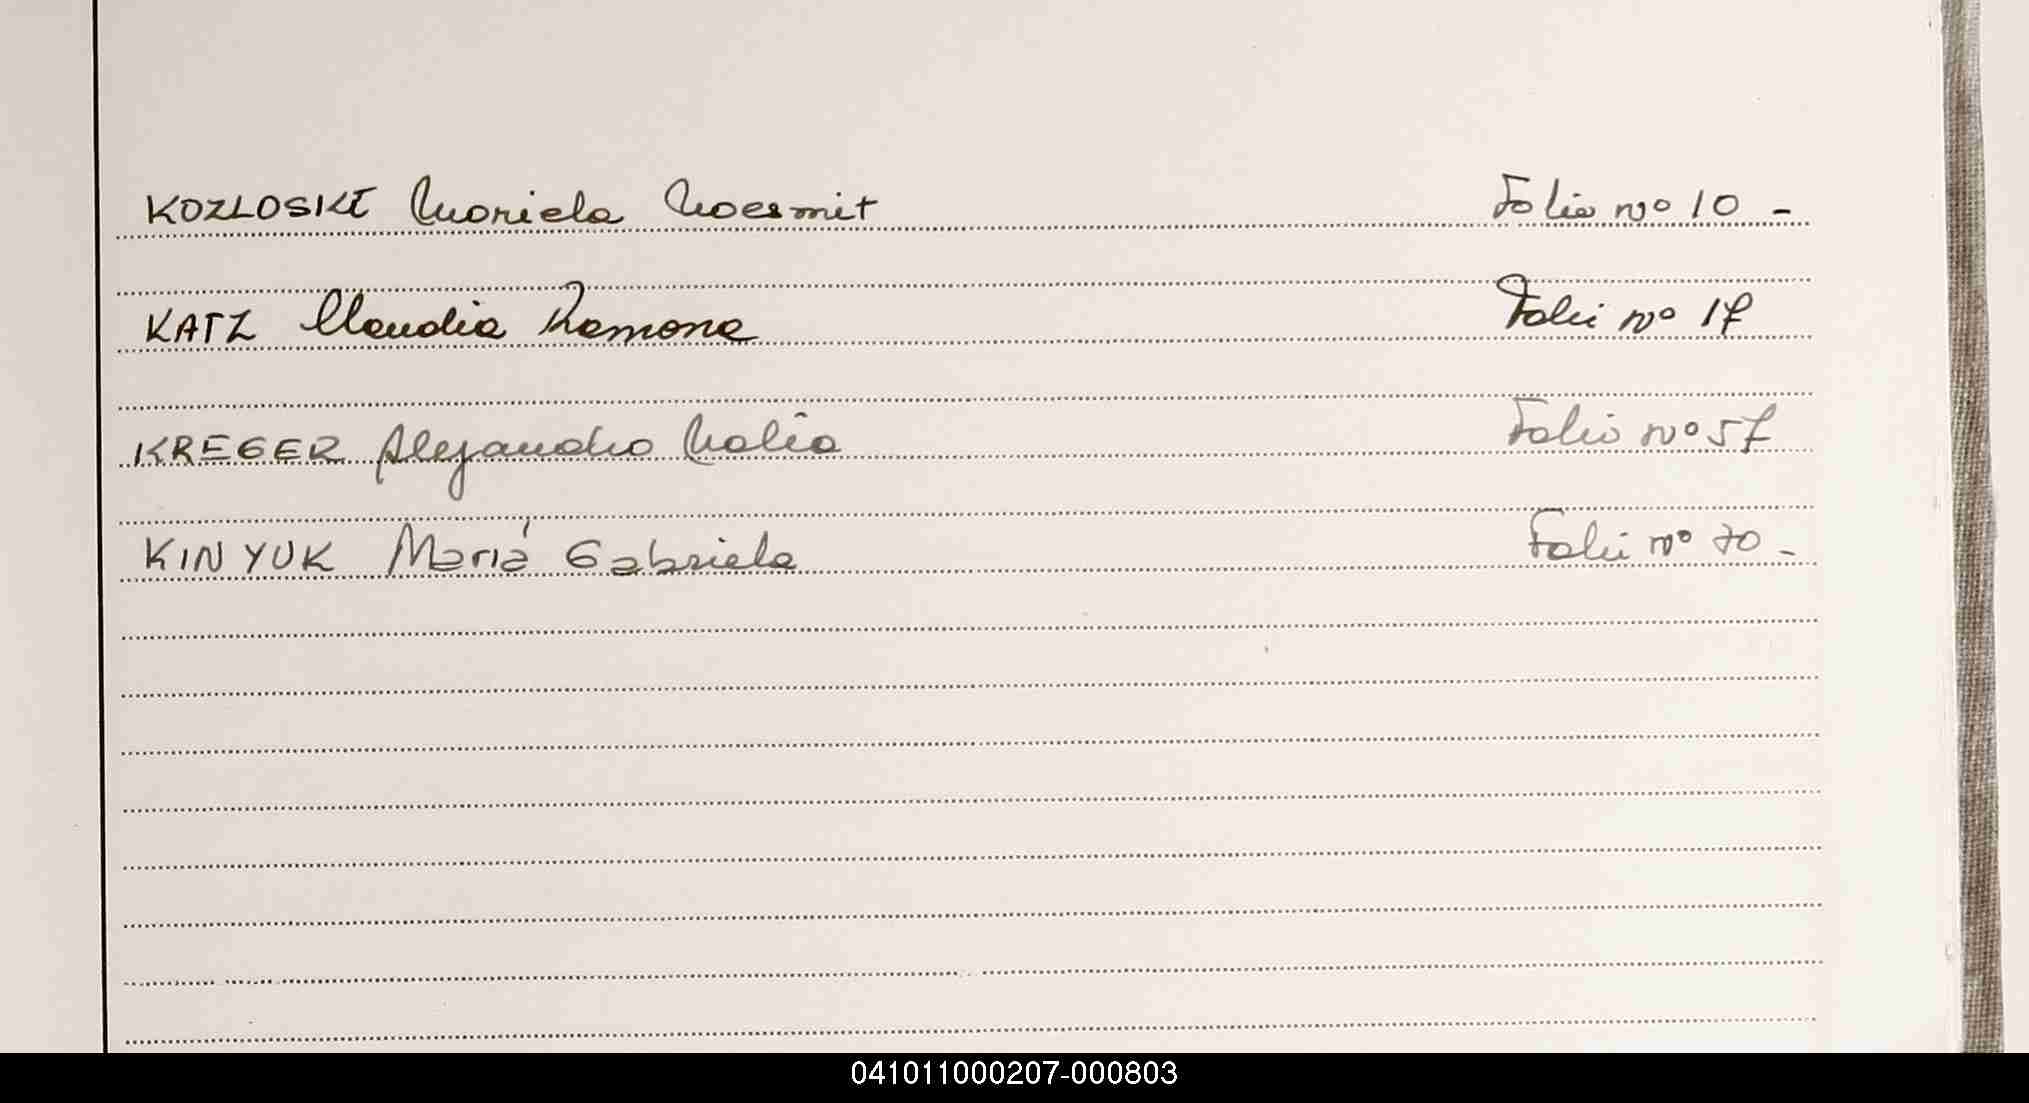 KOZLOSKI Mariela Noemit Folio nº 10 -
KATZ Claudia Ramona Folio nº 17
KREGER Alejandro Folio nº 57
KINYUK Mariá Gabriela Folio nº 70 -
041011000207-000803